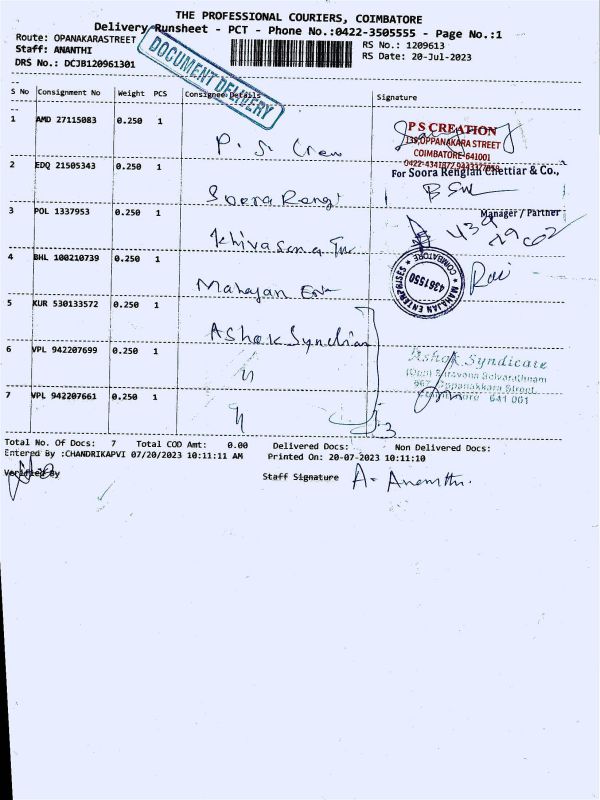 THE PROFESSIONAL COURIERS, COIMBATORE
Delivery Runsheet - PCT - Phone No.:0422-3505555 - Page No.:1
Route: OPANAKARASTREET
RS No.: 1209613
Staff: ANANTHI
RS Date: 20-Jul-2023
DRS No.: DCJB120961301
DOCUMENT DELIVERY
S No Consignment No Weight PCS Consignee Details Signature
1 AMD 27115083 0.250 1 P. S. Crea
P S CREATION
139, OPPANAKARA STREET
COIMBATORE-641001
2 EDQ 21505343 0.250 1 Soora Rengi
For Soora Rengiah Chettiar & Co.,
Manager / Partner
3 POL 1337953 0.250 1
4 BHL 100210739 0.250 1 Mahajan Ent
MAHAJAN ENTERPRISES
COIMBATORE
4361550
5 KUR 530133572 0.250 1 Ashok Syndicate
6 VPL 942207699 0.250 1 "
Ashok Syndicate
(Opp) Saravana Selvarathnam
667, Oppanakkara Street
Coimbatore 641 001
7 VPL 942207661 0.250 1 "
3
Total No. Of Docs: 7 Total COD Amt: 0.00 Delivered Docs: Non Delivered Docs:
Entered By :CHANDRIKAPVI 07/20/2023 10:11:11 AM Printed On: 20-07-2023 10:11:10
Verified By
Staff Signature A. Ananthi.